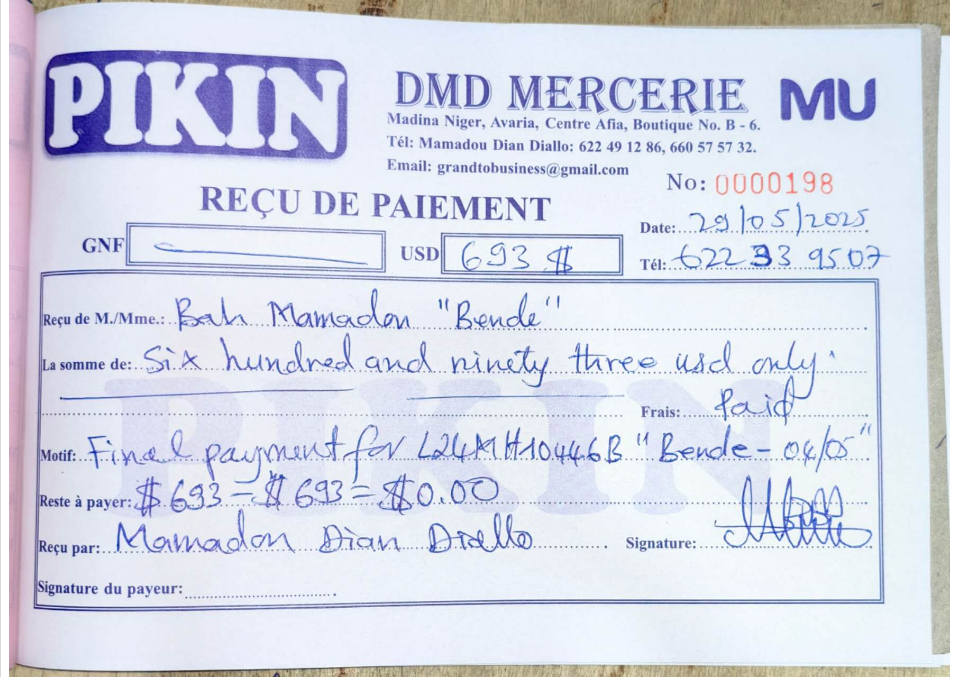 PIKIN
DMD MERCERIE
MU
Madina Niger, Avaria, Centre Afia, Boutique No. B - 6.
Tél: Mamadou Dian Diallo: 622 49 12 86, 660 57 57 32.
Email: grandtobusiness@gmail.com
No: 0000198
REÇU DE PAIEMENT
Date: 29/05/2025
GNF USD 693 $
Tél: 622 33 95 07
Reçu de M./Mme.: Bah Mamadou "Bende"
La somme de: Six hundred and ninety three usd only.
Frais: Paid
Motif: Final payment for L24MH10446B "Bende - 04/05"
Reste à payer: $ 693 - $ 693 = $0.00
Reçu par: Mamadou Dian Diallo Signature:
Signature du payeur:
PIKIN